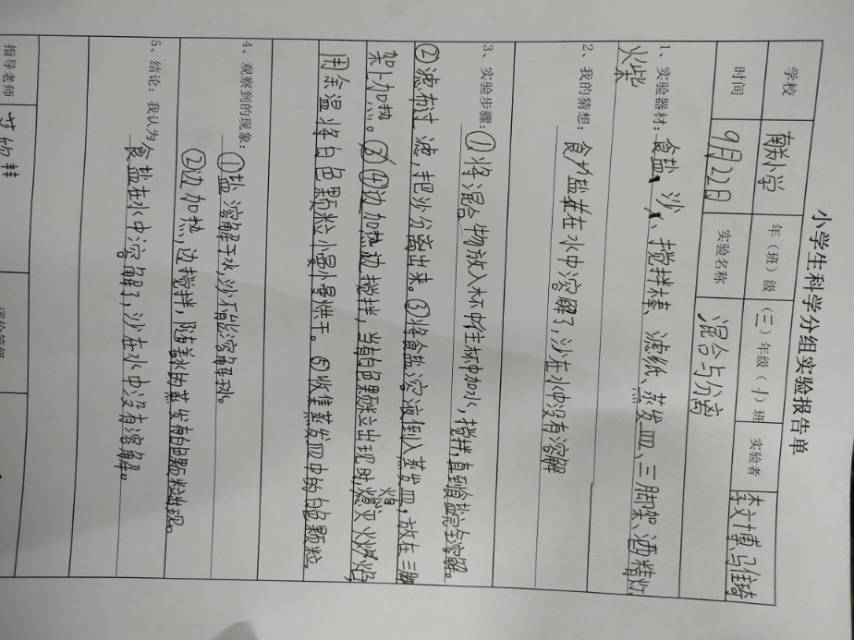 小学生科学分组实验报告单
学校 南关小学 年（班）级 （三）年级（小）班 实验者 李文博、马佳琦
时间 9月22日 实验名称 混合与分离
1、实验器材：食盐、沙、搅拌棒、滤纸、蒸发皿、三脚架、酒精灯
火柴
2、我的猜想：食盐在水中溶解了，沙在水中没有溶解
3、实验步骤：①将混合物放入杯中往杯中加水，搅拌，直到食盐完全溶解。
②滤布过滤，把沙分离出来。③将食盐溶液倒入蒸发皿，放在三脚
架上加热。④边加热边搅拌，当有白色颗粒出现时，熄灭火焰，
用余温将白色颗粒小慢小慢烘干。⑤收集蒸发皿中的白色颗粒。
4、观察到的现象：
①盐溶解于水，沙不能溶解于水。
②边加热，边搅拌，随着水的蒸发有白色颗粒出现。
5、结论：我认为
食盐在水中溶解了，沙在水中没有溶解。
指导老师